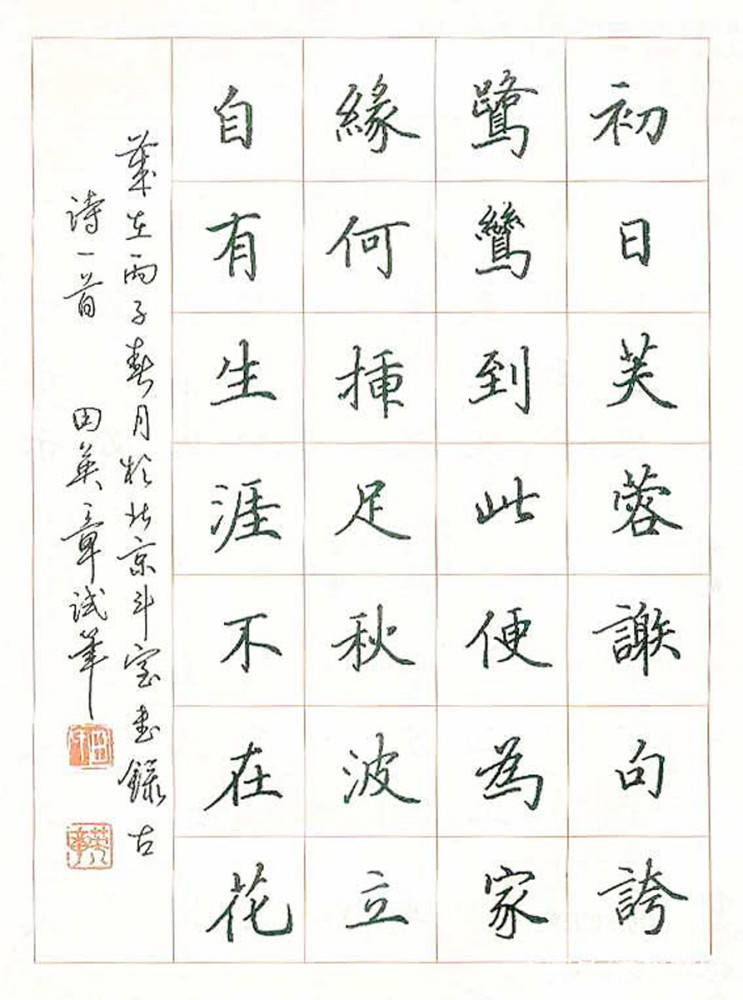 初日芙蓉謝句誇
鷺鷥到此便為家
緣何挿足秋波立
自有生涯不在花
歲在丙子春月於北京斗室書錄古
诗一首 田英章试筆